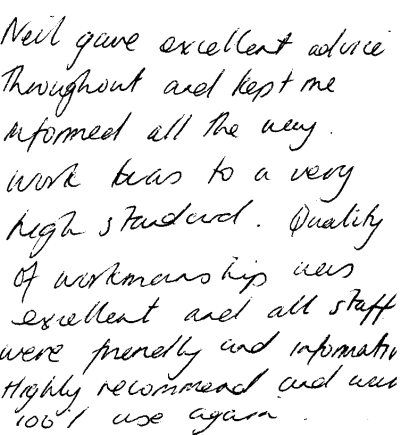 Neil gave excellent advice
Throughout and kept me
informed all the way.
Work was to a very
high standard. Quality
of workmanship was
excellent and all staff
were friendly and informativ
Highly recommend and
100% use again.